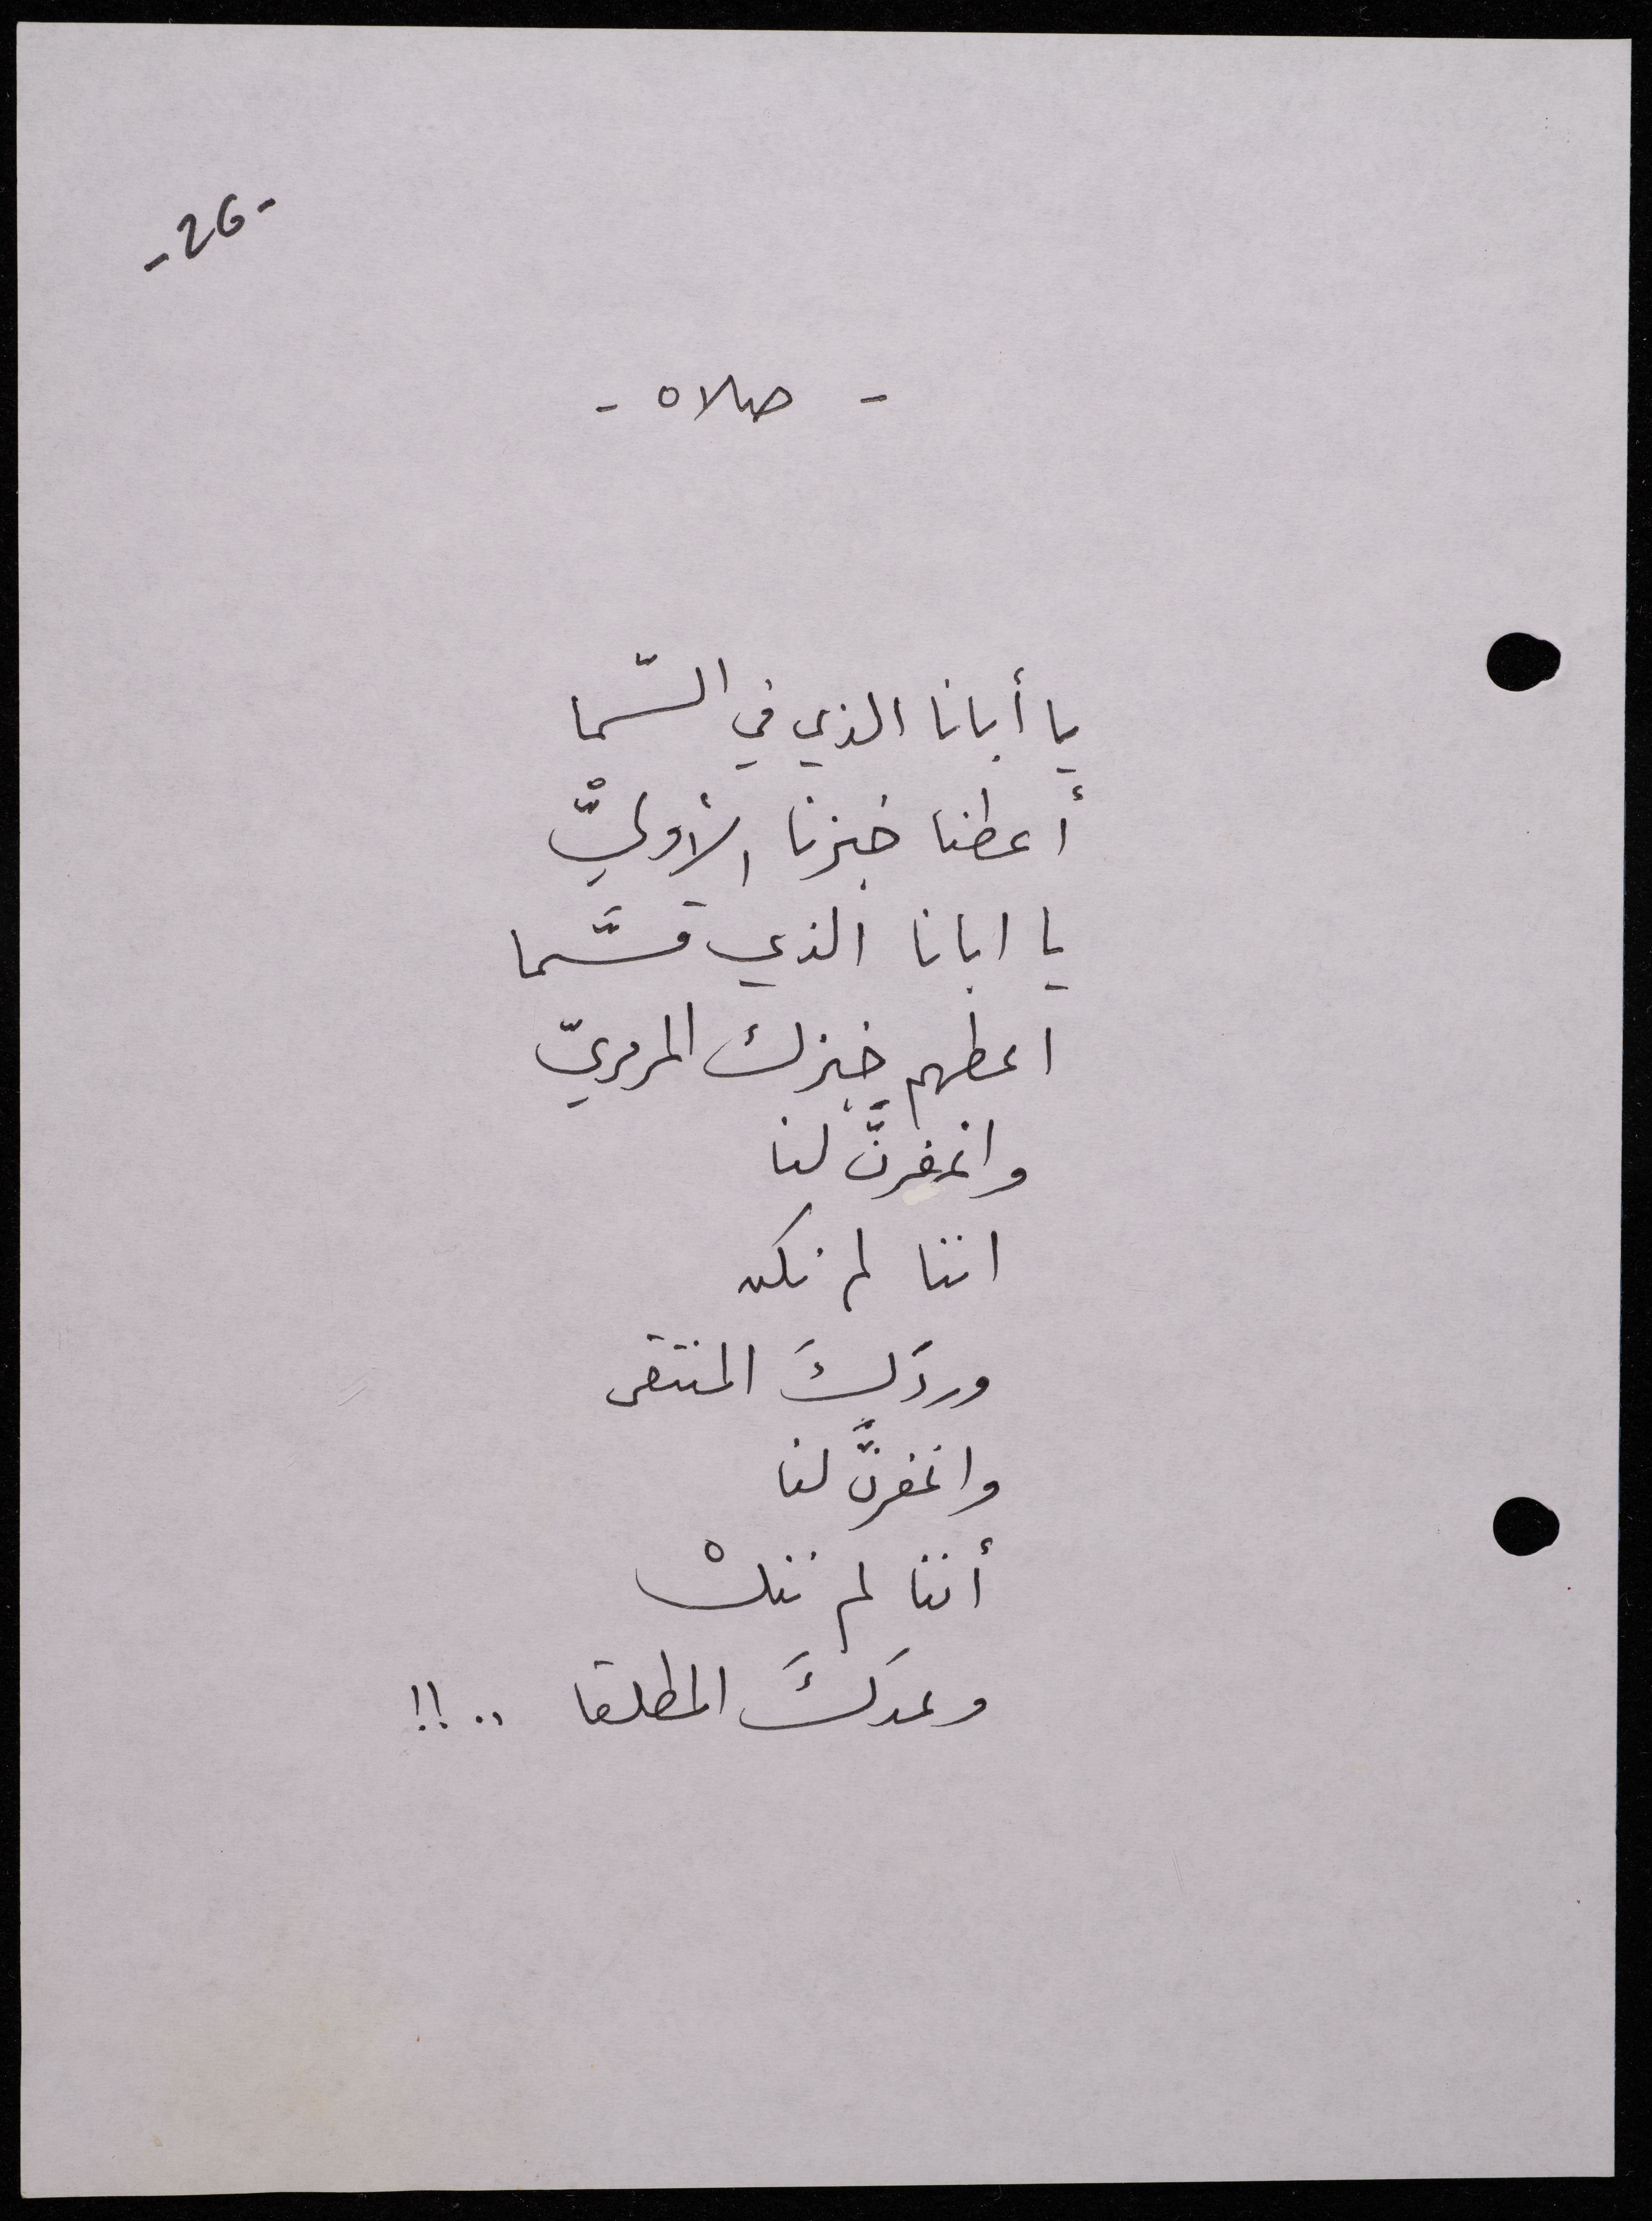 -26-
- صلاه -
يا أبانا الذي في السّما
أعطنا خبزنا الأوليّْ
يا ابانا الذي قسَّما
اعطهم خبزك المرمريّ
واغفرنَّ لنا
اننا لم نكن
وردَكَ المنتقى
واغفرنَّ لنا
أننا لم ننلْ
وعدَكَ المطلقا ..!!